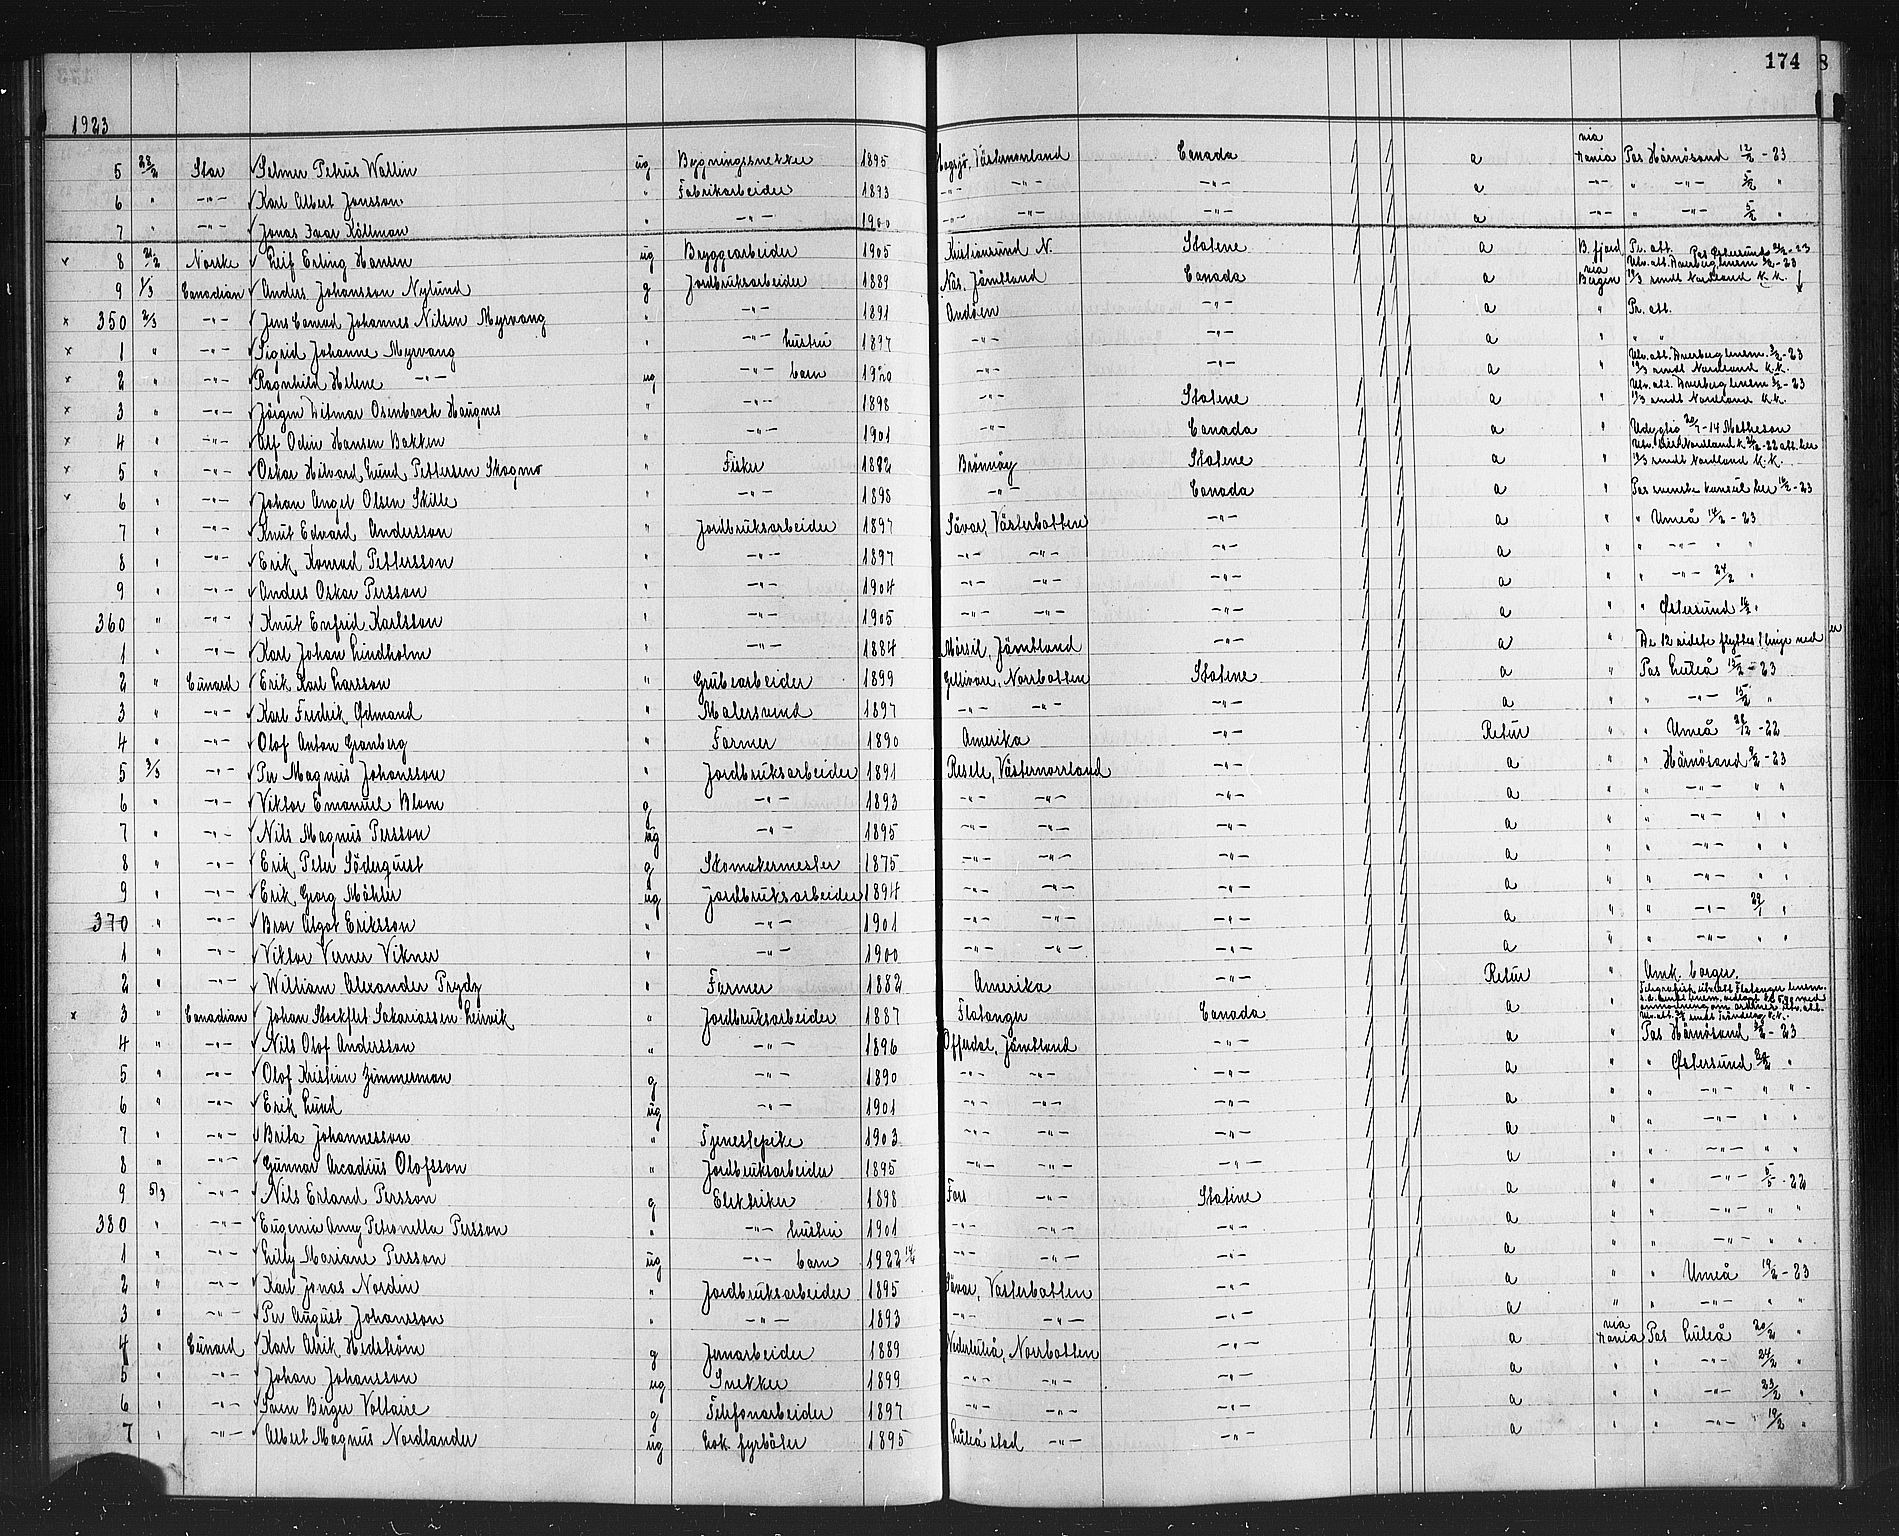 174 8
1923
5 28/2 Star Selmer Petrus Wallin ug Bygningssnekker 1895 Högsjö, Västernorrland Canada a via Rania Pas Härnösand 12/2 - 23
6 " -"- Karl Albert Jonsson " Fabrikarbeider 1893 -"- -"- -"- a -"- " -"- 5/2 "
7 " -"- Jonas Ivar Källman " -"- 1900 -"- -"- -"- a -"- " -"- 5/2 "
8 21/2 Norske Leif Erling Hansen ug Bryggearbeider 1905 Kristiansund N. Statene a B.fjord Pr. att. Pas Østersund 24/2 - 23
9 1/3 Canadian Anders Johansson Nylund g Jordbruksarbeider 1889 Näs, Jämtland Canada a via Bergen
350 2/3 -"- Jens Conrad Johannes Nilsen Myrvang " -"- 1891 Andöen -"- a " Pr. att.
1 " -"- Sigrid Johanne Myrvang " -"- hustru 1897 -"- -"- a " " "
2 " -"- Ragnhild Helene -"- ug -"- barn 1920 -"- -"- a "
3 " -"- Jörgen Hilmar Osenbroch Haugnes " -"- 1898 -"- Statene a "
4 " -"- Alf Odin Hansen Bakken " -"- 1901 Canada a "
5 " -"- Oskar Hilvard Lund Pettersen Skogmo " Fisker 1882 Brönnöy Statene a " 19/3 sendt Nordland k.k.
6 " -"- Johan Angel Olsen Skille " -"- 1898 -"- Canada a " Pas svenske konsul her 16/2 - 23
7 " -"- Knut Edvard Andersson " Jordbruksarbeider 1897 Sävar, Västerbotten -"- a " " Umeå 14/2 - 23
8 " -"- Erik Konrad Pettersson " -"- 1897 -"- -"- -"- a " " -"- " "
9 " -"- Anders Oskar Persson " -"- 1904 -"- -"- -"- a " " -"- 24/2 "
360 " -"- Knut Enfrid Karlsson " -"- 1905 -"- -"- -"- a " " Østersund 16/2 "
1 " -"- Karl Johan Lindholm " -"- 1884 Mörsil, Jämtland -"- a " De 12 sidste flyttes 1 linje ned
2 " Cunard Erik Karl Larsson " Grubearbeider 1899 Gellivare, Norrbotten Statene a " Pas Luleå 15/2 - 23
3 " -"- Karl Fredrik Ödmand " Malersvend 1897 -"- -"- -"- a " " -"- 15/2 "
4 " -"- Olof Anton Granberg " Farmer 1890 Amerika -"- Retur " " Umeå 28/12 - 22
5 3/3 -"- Per Magnus Johansson " Jordbruksarbeider 1891 Resele, Västernorrland -"- a " " Härnösand 9/2 - 23
6 " -"- Viktor Emanuel Blom g -"- 1893 -"- -"- -"- a " " -"- " "
7 " -"- Nils Magnus Persson ug -"- 1895 -"- -"- -"- a " " -"- " "
8 " -"- Erik Peter Söderquist g Skomakermester 1875 -"- -"- -"- a " " -"- " "
9 " -"- Erik Georg Mähler ug Jordbruksarbeider 1894 -"- -"- -"- a " " -"- " "
370 " -"- Bror Algot Eriksson " -"- 1901 -"- -"- -"- a " " -"- 29/1 "
1 " -"- Viktor Verner Vikner " -"- 1900 -"- -"- -"- a " " -"- " "
2 " -"- William Alexander Prydz " Farmer 1882 Amerika -"- Retur " Amk. borger.
3 " Canadian Johan Stockflet Sakariassen Leirvik " Jordbruksarbeider 1887 Flatanger Canada a "
4 " -"- Nils Olof Andersson " -"- 1896 Offerdal, Jämtland -"- a " Pas Härnösand - 23
5 " -"- Olof Kristian Zimmerman g -"- 1890 -"- -"- -"- a " " Østersund 24/2 "
6 " -"- Erik Lund ug -"- 1901 -"- -"- -"- a " " -"- " "
7 " -"- Brita Johannesson " Tjenestepike 1903 -"- -"- -"- a " " -"- " "
8 " -"- Gunnar Arcadius Olofsson " Jordbruksarbeider 1895 -"- -"- -"- a " " -"- " "
9 5/3 -"- Nils Erland Persson g Elektriker 1898 Fors -"- Statene a " " -"- 5/5 - 22
380 " -"- Eugenia Amy Petronella Persson " -"- hustru 1901 -"- -"- -"- a " " -"- " "
1 " -"- Lilly Mariane Persson ug -"- barn 1922 -"- -"- -"- a " " -"- " "
2 " -"- Karl Jonas Nordin " Jordbruksarbeider 1895 Sävar, Västerbotten -"- a " " Umeå 19/2 - 23
3 " -"- Per August Johansson " -"- 1893 -"- -"- -"- a " " -"- " "
4 " Cunard Karl Alrik Hedström g Jernarbeider 1889 Nederluleå, Norrbotten -"- a via Rania Pas Luleå 20/2 "
5 " -"- Johan Johansson ug Snekker 1899 -"- -"- -"- a " " -"- 24/2 "
6 " -"- Sven Birger Voltaire g Telefonarbeider 1897 -"- -"- -"- a " " -"- 23/2 "
7 " -"- Albert Magnus Nordlander ug Lok. fyrböter 1895 Luleå stad -"- -"- a " " -"- 19/2 "